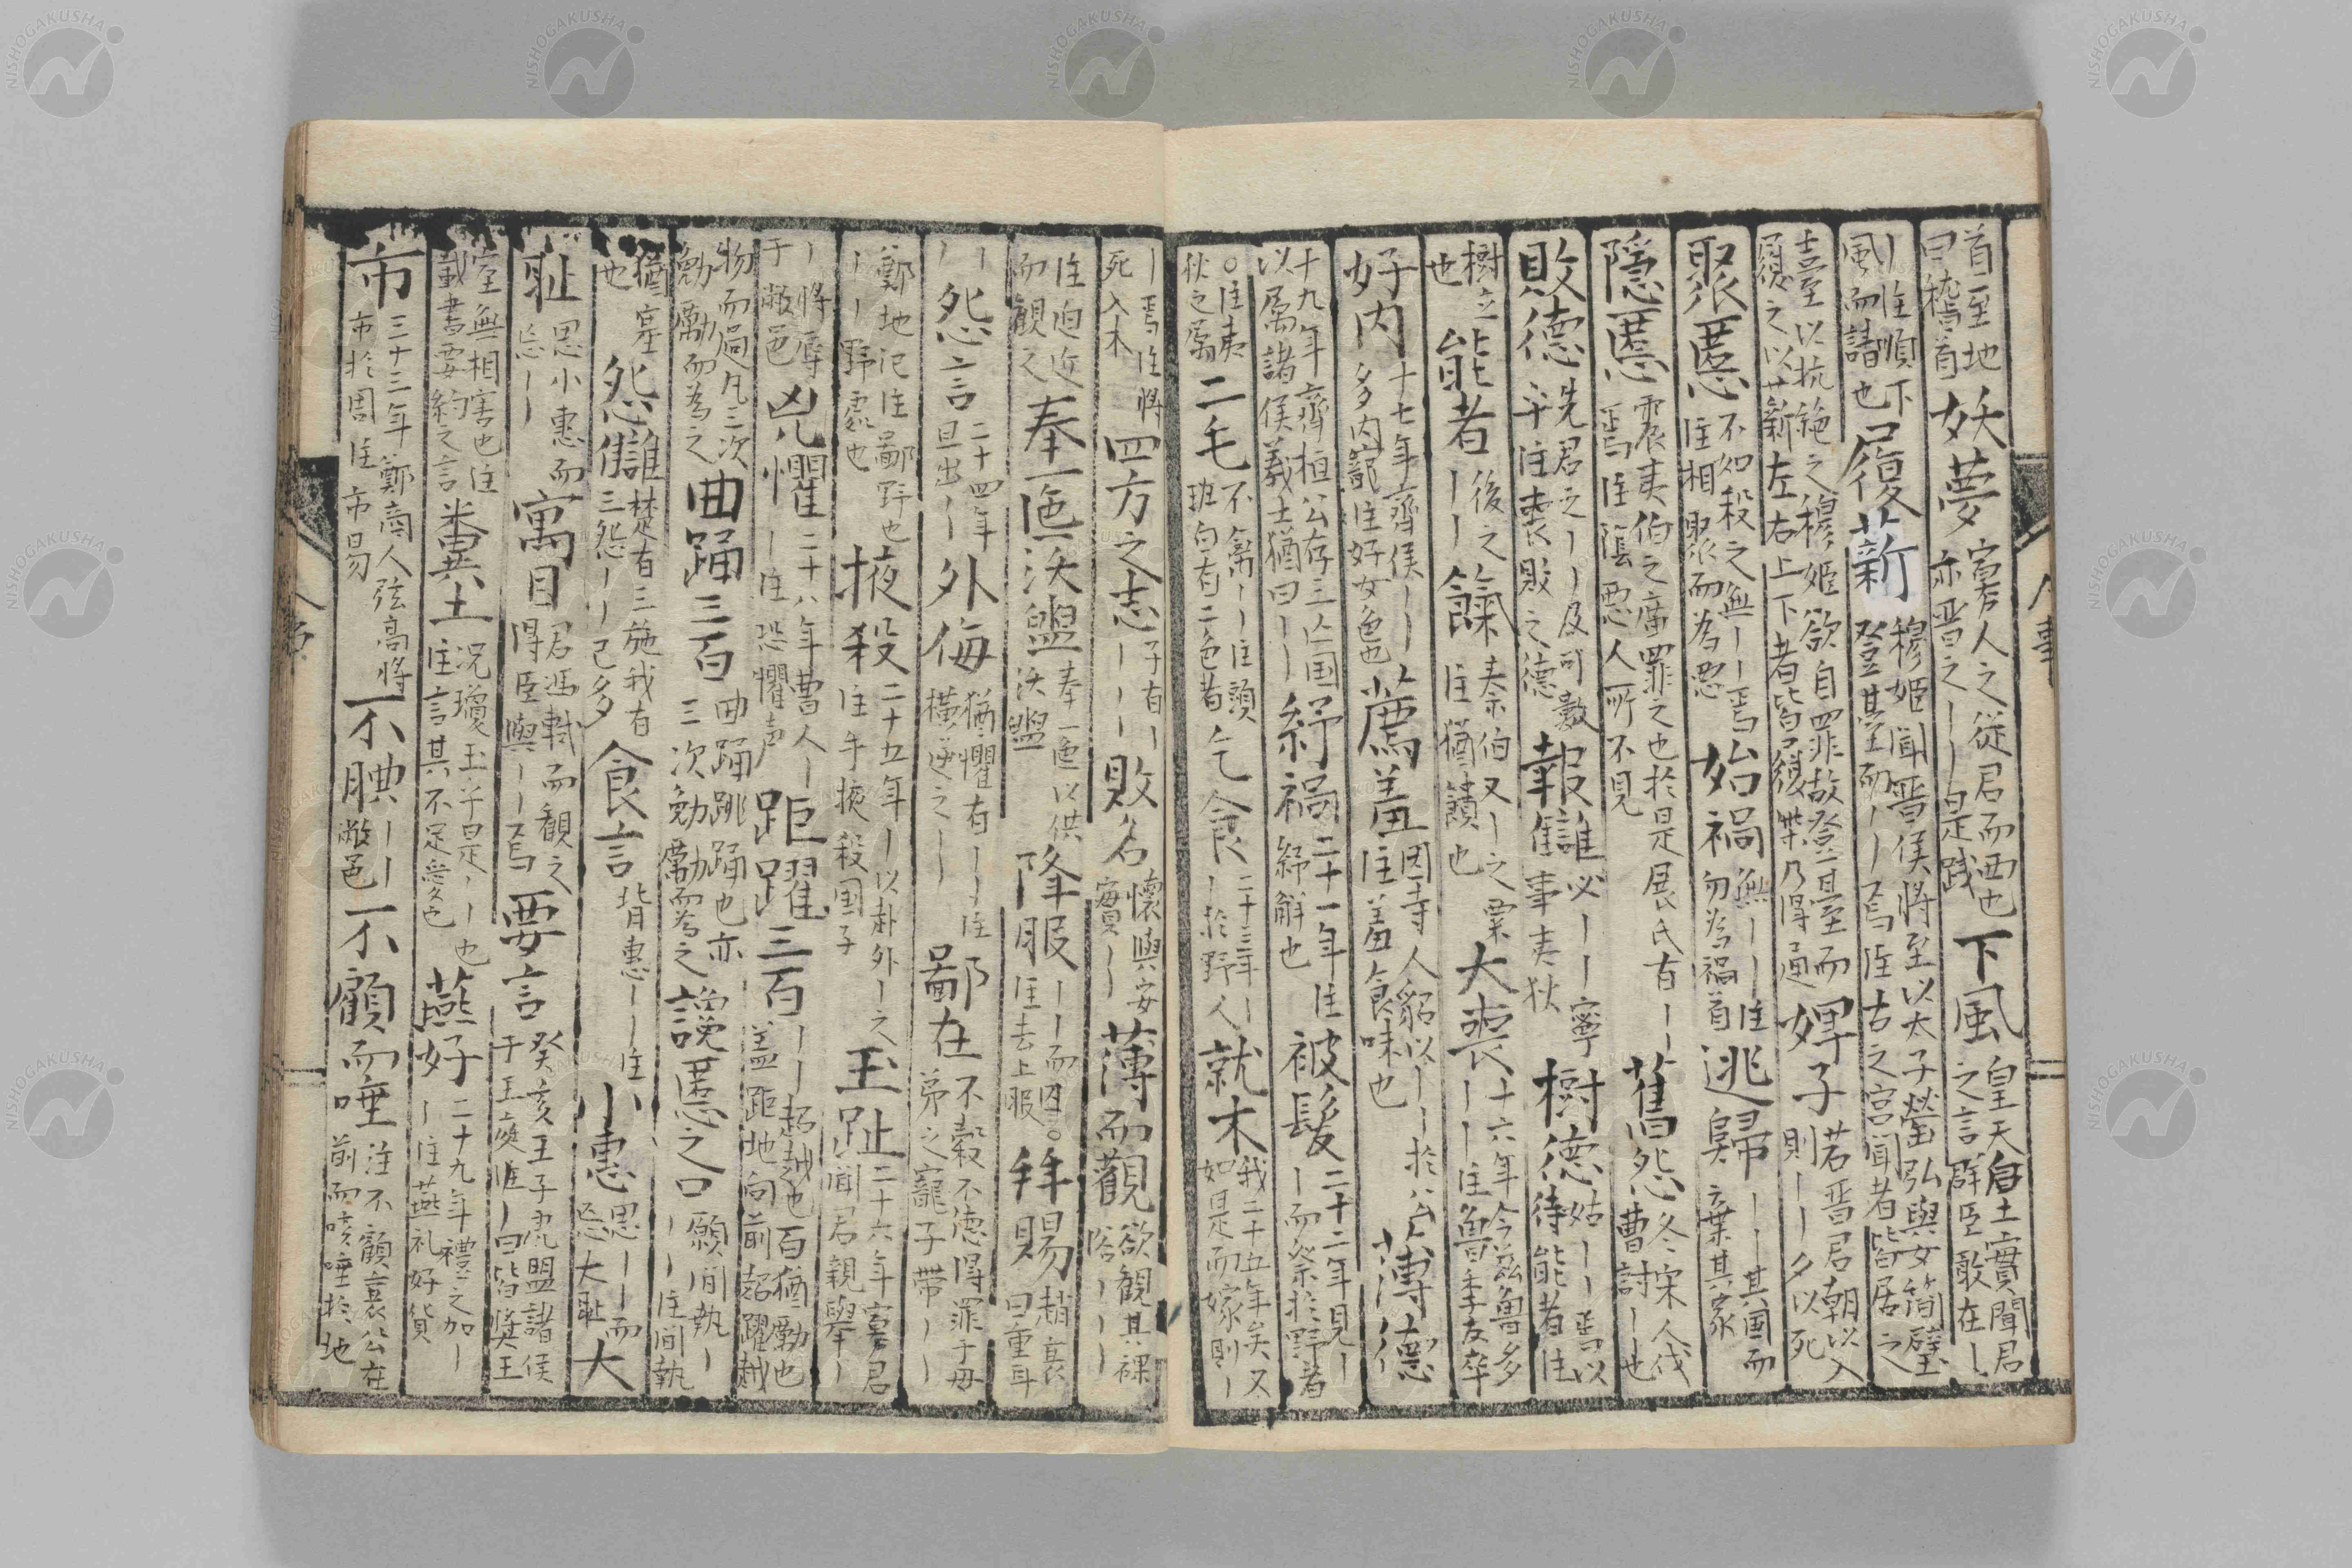 首至地
曰稽首
妖夢
寡人之從君而西也
亦晋之丨丨是踐
下風
皇天后土實聞君
之言群臣敢在丨
丨注順下
風而請也
履薪
穆姬聞晋侯將至以太子罃弘與女簡璧
登其臺而丨丨焉注古之宮闈者皆居之
臺以抗絶之穆姬欲自罪故登臺而
履之以薪左右上下者皆履柴乃得通
婢子
若晋君朝以入
則丨丨夕以死
聚慝
不如殺之無丨丨焉
注相聚而為惡
始禍
無丨丨注
勿為禍首
逃歸
丨丨其國而
棄其家
隱慝
震夷伯之庿罪之也於是展氏有丨
焉注隂惡人所不見
舊怨
冬宋人伐
曹討丨也
敗德
先君之丨丨及可數
乎注喪敗之德
報讎
必丨丨寧
事夷狄
樹德
姑丨丨焉以
待能者注
樹立
也
能者
後之
丨丨
餼
秦伯又丨之粟
注猶饋也
大喪
十六年今兹魯多
丨丨注魯季友卒
好内
十七年齊侯丨丨
多内寵注好女色也
薦羞
因寺人貂以丨丨於公
注羞食味也
薄德
十九年齊桓公存三亡国
以属諸侯義士猶曰丨丨
紓禍
二十一年注
紓解也
被髮
二十二年見丨
丨而祭於野者
○注夷
狄之属
二毛
不禽丨丨注頭
班白有二色者
乞食
二十三年丨
丨於野人
就木
我二十五年矣又
如是而嫁則丨
丨焉注將
死入木
四方之志
子有丨
丨丨丨
敗名
懷與安
實丨丨
薄而觀
欲観其裸
浴丨丨丨
注迫近
而観之
奉匜沃盥
奉匜以供
沃盥
降服
丨丨而囚○
注去上服
拜賜
趙衰
曰重耳
丨
丨
怨言
二十四年
且出丨
外侮
猶懼有丨丨注
横逆之丨丨
鄙在
不穀不德得罪于母
弟之寵子帶丨丨
鄭地汜注鄙野也
丨丨野處也
掖殺
二十五年丨以赴外丨之
注手掖殺国子
玉趾
二十六年寡君
聞君親舉丨
丨將辱
于敝邑
兇懼
二十八年曹人丨
丨注恐懼声
距躍三百
丨丨超越也百猶勵也
盖距地向前超躍越
物而過凡三次
勉勵而為之
曲踊三百
曲踊跳踊也亦
三次勉勵而為之
讒慝之口
願間執丨
丨丨注間執
猶塞
也
怨讎
楚有三施我有
三怨丨丨己多
食言
背惠丨丨注
小惠
思丨丨而
忘大耻
大
耻
思小惠而
忘丨丨
寓目
君馮軾而観之
得臣與丨丨焉
要言
癸亥王子虎盟諸侯
于王庭丨曰皆奬王
室無相害也注
載書要約之言
糞土
况瓊玉乎是丨丨也
注言其不足愛也
燕好
二十九年禮之加丨
丨注燕礼好貨
市
三十三年鄭商人弦高將
市於周注市易
不腆
丨丨
敝邑
不顧而唾
注不顧襄公在
前而咳唾於地